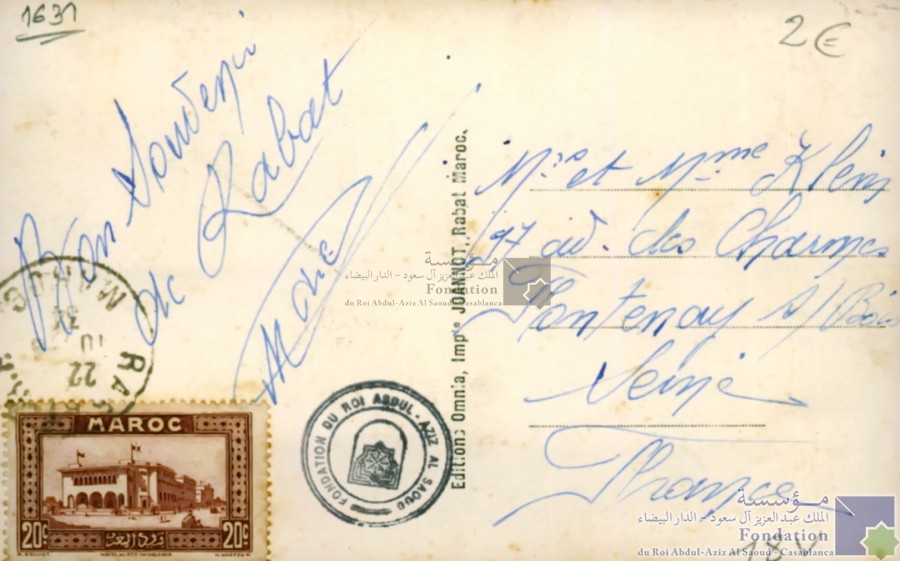 1631
2€
Bon Souvenir
de Rabat
Editions Omnia, Imp^ie JOANNOT, Rabat Maroc.
M^r et M^me Klein
97 av. des Charmes
Fontenay s/Bois
Seine
France
مؤسسة
الملك عبد العزيز آل سعود - الدار البيضاء
Fondation
du Roi Abdul-Aziz Al Saoud - Casablanca
MAROC
22
10
MAROC
20c
20c
FONDATION DU ROI ABDUL-AZIZ AL SAOUD
مؤسسة
الملك عبد العزيز آل سعود - الدار البيضاء
Fondation
du Roi Abdul-Aziz Al Saoud - Casablanca